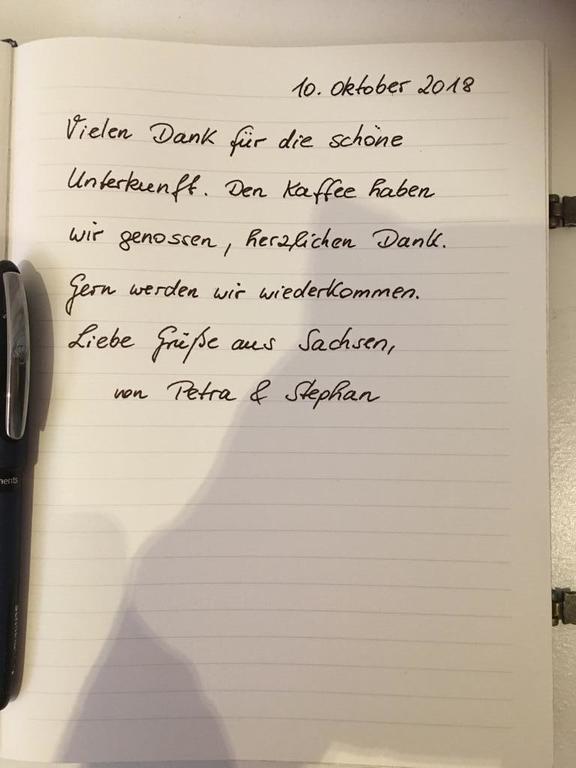 10. Oktober 2018
Vielen Dank für die schöne
Unterkunft. Den Kaffee haben
wir genossen, herzlichen Dank.
Gern werden wir wiederkommen.
Liebe Grüße aus Sachsen,
von Petra & Stephan